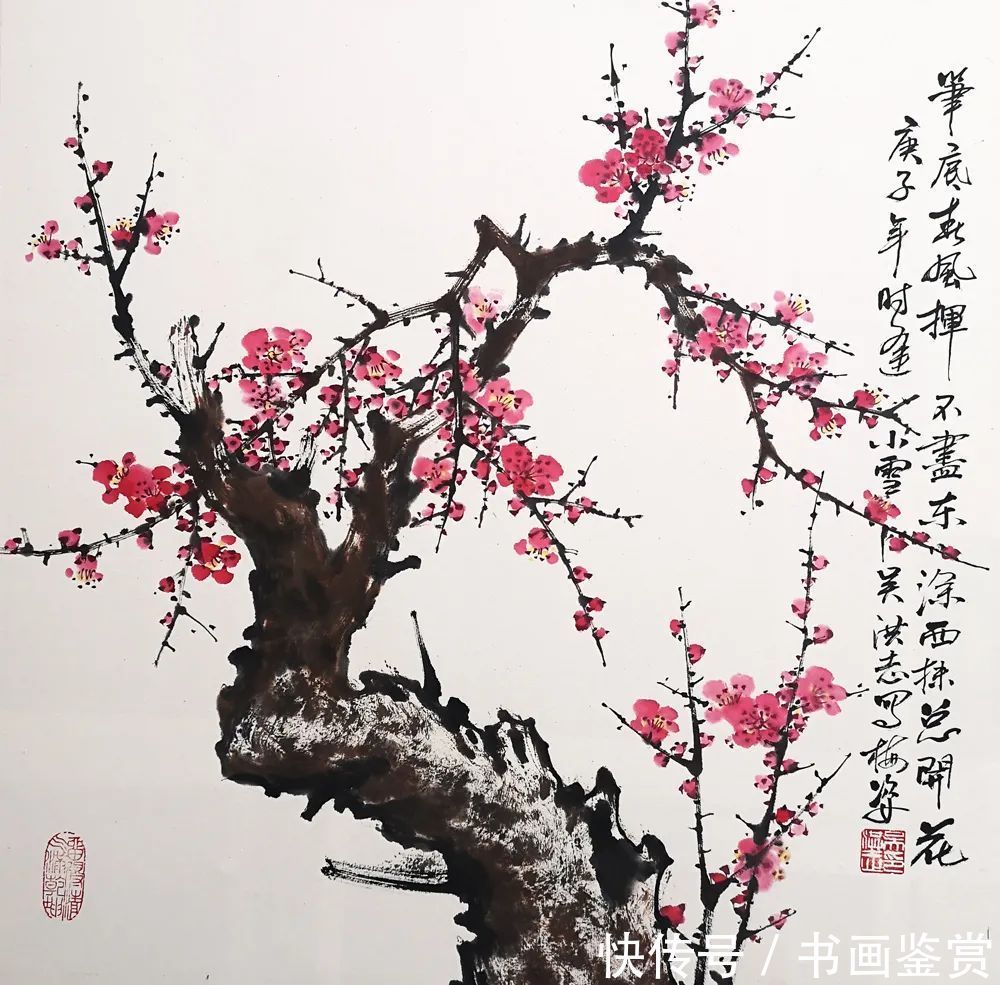 筆底春風揮不盡东涂西抹总開花
庚子年时逢小雪吴洪志写梅姿
快传号/书画鉴赏